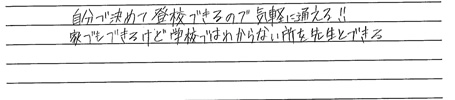 自分で決めて登校できるので気軽に通える!!
家でもできるけど学校ではわからない所を先生とできる